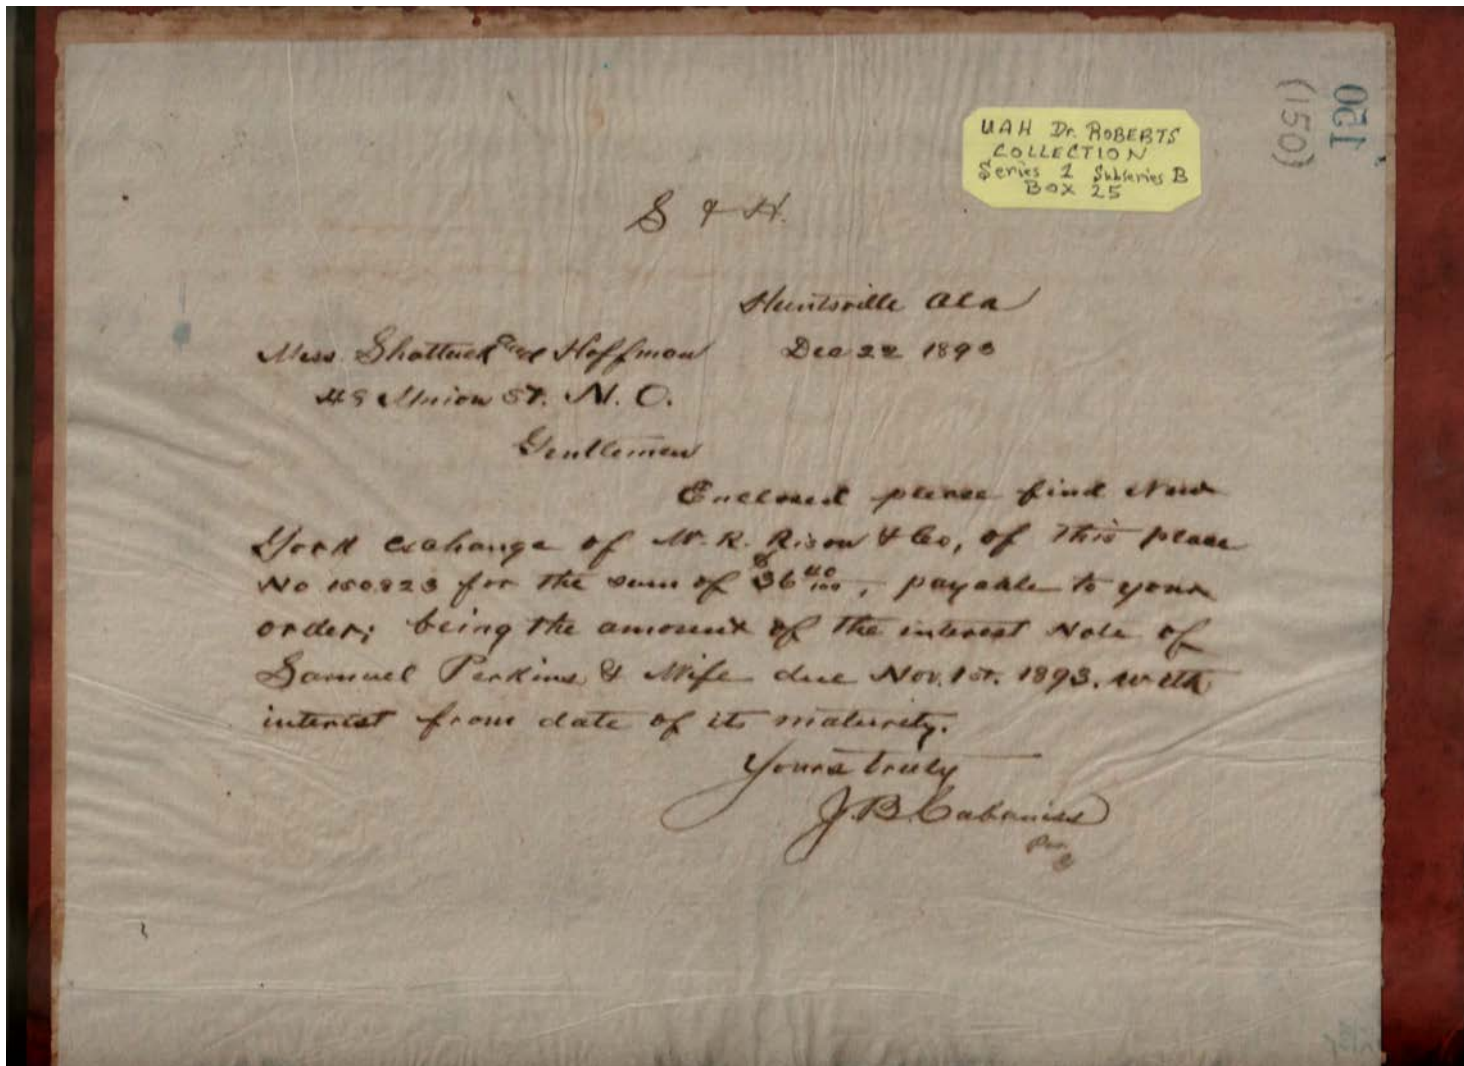 150
(150)
UAH Dr. ROBERTS
COLLECTION
Series 1 Subseries B
BOX 25
S & H.
Huntsville Ala
Mess. Shattuck and Hoffman Dec 22 1893
48 Union St. N. O.
Gentlemen
Enclosed please find New
York exchange of W. R. Rison & Co, of this place
No 150823 for the sum of $36 40/100, payable to your
order; being the amount of the interest Note of
Samuel Perkins & Wife due Nov. 1st. 1893. with
interest from date of its maturity.
Yours truly
J. B. Cabaniss
Per